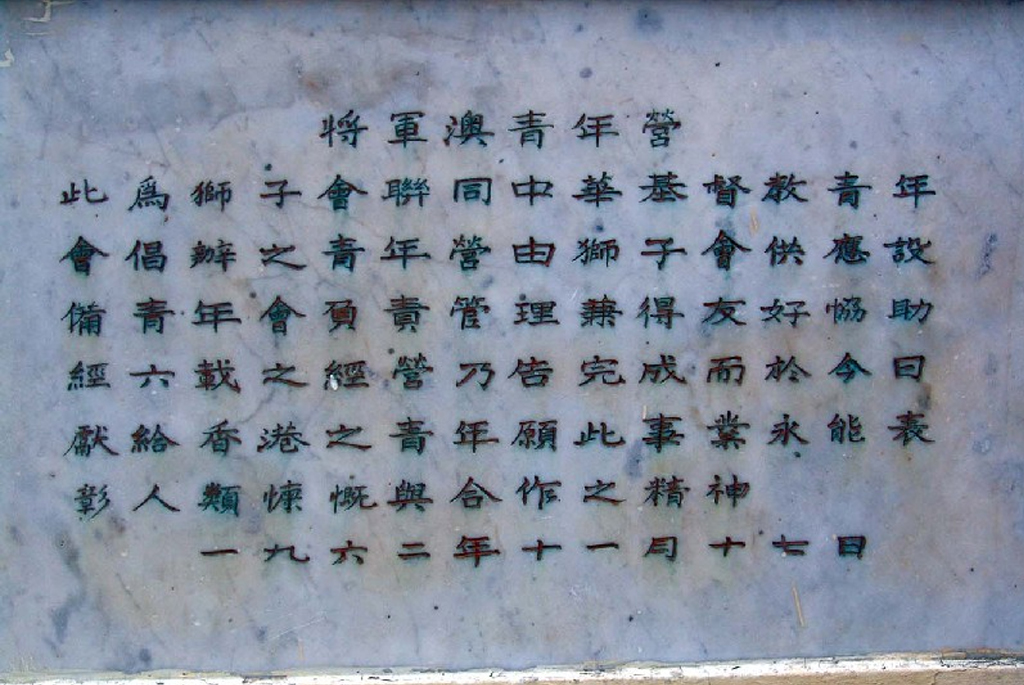 將軍澳青年營
此為獅子會聯同中華基督教青年
會倡辦之青年營由獅子會供應設
備青年會負責管理兼得友好協助
經六載之經營乃告完成而於今日
獻給香港之青年願此事業永能表
彰人類慷慨與合作之精神
一九六二年十一月十七日